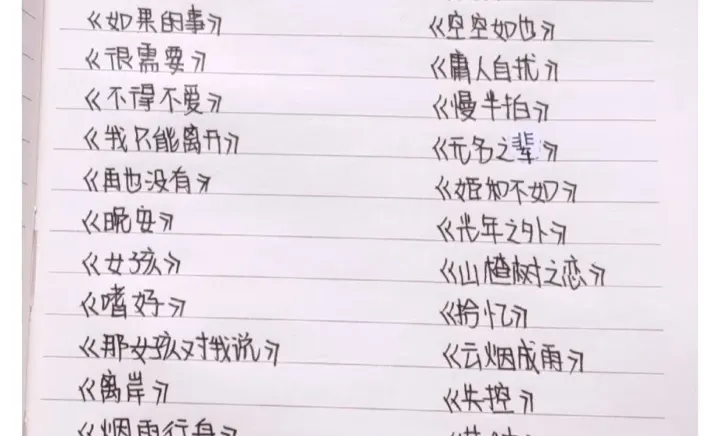 《如果的事》
《很需要》
《不得不爱》
《我只能离开》
《再也没有》
《晚安》
《女孩》
《嗜好》
《那女孩对我说》
《离岸》
《烟雨行舟》
《空空如也》
《庸人自扰》
《慢半拍》
《无名之辈》
《婚知不如》
《光年之外》
《山楂树之恋》
《拾忆》
《云烟成雨》
《失控》